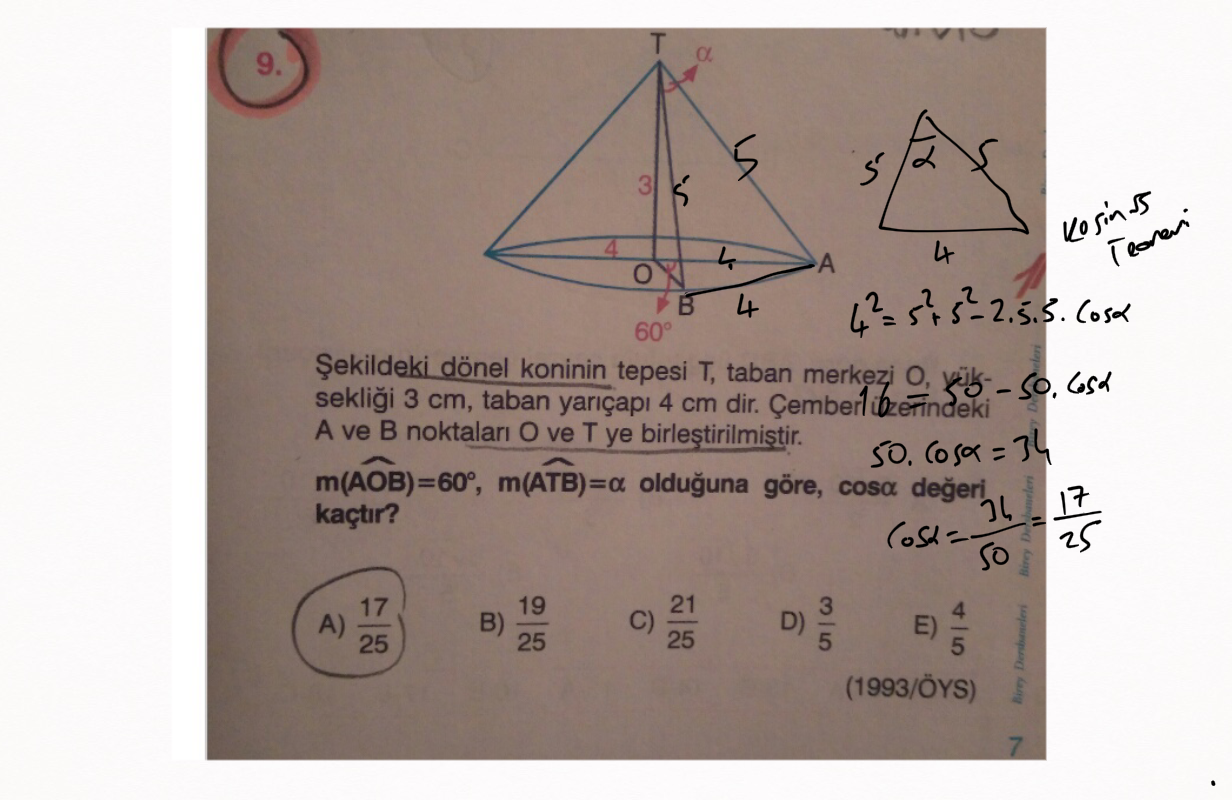 9.
T
α
5
3
5
4
4
O
A
B
4
60°
5 α 5
4
Kosinüs
Teoremi
4² = 5² + 5² - 2.5.5. Cosα
16 = 50 - 50. Cosα
50. Cosα = 34
Cosα = 34/50 = 17/25
Şekildeki dönel koninin tepesi T, taban merkezi O, yük-
sekliği 3 cm, taban yarıçapı 4 cm dir. Çember üzerindeki
A ve B noktaları O ve T ye birleştirilmiştir.
m(AOB)=60°, m(ATB)=α olduğuna göre, cosα değeri
kaçtır?
A) 17/25 B) 19/25 C) 21/25 D) 3/5 E) 4/5
(1993/ÖYS)
Birey Dershaneleri Birey Dershaneleri
7